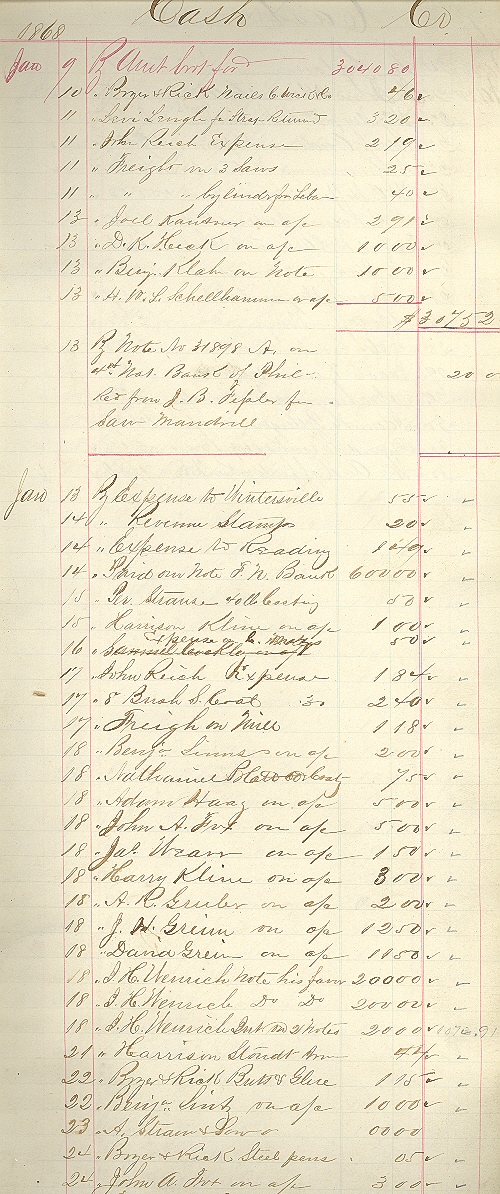 Cash Cr.
1868
Jan 9 By Amt brot for'd 3040 80
10 " Boyer & Rick Nails 46
11 " Levi Dengle for Strap Return'd 3 20
11 " John Reich Expense 2 19
11 " Freight on 3 Saws 25
11 " " " Cylinder for 40
13 " Joel Kantner on a/c 2 91
13 " D. K. Heck on a/c 10 00
13 " Benj. Klah on Note 10 00
13 " H. W. L. Schellhammer on a/c 5 00
$3075 2
13 By Note No 31898 A. on
Nat. Bank of Phil-
Recd from J. B. for
Saw Mandrill
20 0
Jan 13 By Expense to Wintersville 55
14 " Revenue Stamps 20
14 " Expense to Reading 1 40
14 " Paid our Note F. N. Bank 600 00
15 " Strause toll Casting 50
15 " Harrison Kline on a/c 1 00
16 " Expense 50
17 " John Reich Expense 1 84
17 " 8 Bush S. Coal 30 2 40
17 " Freigh on Mill 1 18
18 " Benja. Sinns on a/c 2 00
18 " Nathaniel 75
18 " Adam Haag on a/c 5 00
18 " John A. Fox on a/c 5 00
18 " Jas. Weaver on a/c 1 50
18 " Harry Kline on a/c 3 00
18 " A. R. Gruber on a/c 2 00
18 " J. H. Greim on a/c 12 50
18 " David Greim on a/c 11 50
18 " I. H. Wenrich Note his favor 200 00
18 " I. H. Wenrich Do Do 200 00
18 " I. H. Wenrich Int on 2 Notes 20 00
21 " Harrison Stoudt
22 " Boyer & Rick Butts & Glue 1 15
22 " Benja. Sintz on a/c 10 00
23 " A. 00 00
24 " Boyer & Rick Steel pens 05
24 " John A. Fox on a/c 3 00